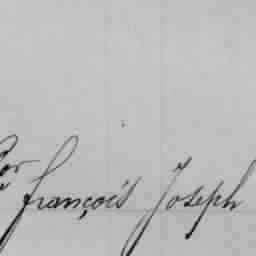 françois Joseph